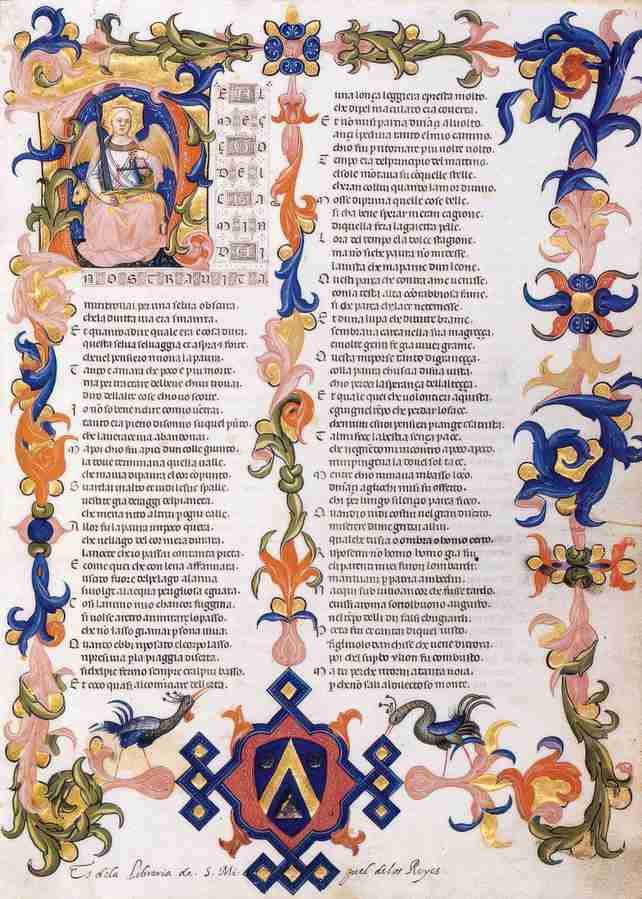 EL
MEÇO
DEL
CAMIN
DI
NOSTRA VITA
mi ritrovai per una selva obscura.
che la diritta via era smarrita.
Et quanto a dir quale era e cosa dura.
questa selva selvaggia et aspra et forte.
che nel pensiero rinova la paura.
Tanto e amara che poco e piu morte.
ma per tractare del bene chivi trovai.
diro dellaltre cose chio vo scorte.
Io nō so bene ridire comio ventrai.
tanto era pieno disonno su quel pūto.
che la verace via abandonai.
Ma poi chio fui apie dun colle giunto.
la dove terminava quella valle.
che mavea dipaura el cor cōpunto.
Guardai in alto et vidi lesue spalle.
vestite gia deraggi delpianeta.
che mena ritto altrui p ogni calle.
Allor fu la paura unpoco queta.
che nellago del cor mera durata.
lanocte chio passai con tanta pieta.
Et come quei che con lena affannata.
uscito fuore del pelago alariva
si volge alacqua perigliosa et guata.
Cosi lanimo mio chancor fuggiva.
si volse aretro arimirare lopasso.
che nō lasso giamai psona viva.
Quanto ebbi riposato elcorpo lasso.
ripresi via pla piaggia diserta.
siche l pie fermo sempre eral piu basso.
Et ecco quasi al cominciare dellerta.
una lonça leggiera et presta molto.
che di pel maculato era coverta.
Et nō misi partia dināçi al volto.
anç ipediva tanto el mio camino.
chio fui p ritornare piu volte volto.
Tempo era del principio del mattino.
el sole mōtava su cōquelle stelle.
cheran collui quanto lamor divino.
Mosse di prima quelle cose belle.
si cha bene sperar mera cagione.
di quella fera lagaietta pelle.
Lora del tempo et la dolce stagione.
ma nō si che paura no mi desse.
la vista che mapparve dun leone.
Questi parea che contra me venisse.
con la testa alta et cō rabbiosa fame.
si che parea che laer ne temesse.
Et duna lupa che di tutte brame.
sembrava carca nella sua magreçça.
et molte genti fe gia viver grame.
Questa mi porse tanto di graveçça.
colla paura chuscia di sua vista.
chio perdei la sperança dellalteçça.
Et quale quei che volontieri aquista.
et giugne l tēpo che perder lo face.
che n tutti esuoi pensier piange et sattrista.
Tal mi fece la bestia sença pace.
che vegnēdomi incontro apoco apoco.
mi ripingeva la dove l sol tace.
Mentre chio ruvinava inbasso loco.
dināçi agliocchi misi fu offerto.
chi per lungo silentio parea fioco.
Quando vidi costui nel gran diserto.
miserere di me gridai allui.
qualche tu sia o ombra o homo certo.
Risposemi nō homo homo gia fui
et li parenti miei furon lombardi.
mantuani p patria ambedui.
Naqui sub iulio ancor che fusse tardo.
et vissi a roma sottolbuono augusto.
nel tēpo delli dii falsi et bugiardi.
Poeta fui et cantai di quel iusto.
figliuolo danchise che venne di troia.
poi che l supbo ylion fu combusto.
Ma tu perche ritorni a tanta noia.
p che nō sali al dilectoso monte.
Es dela Libreria de S. Miguel delos Reyes.